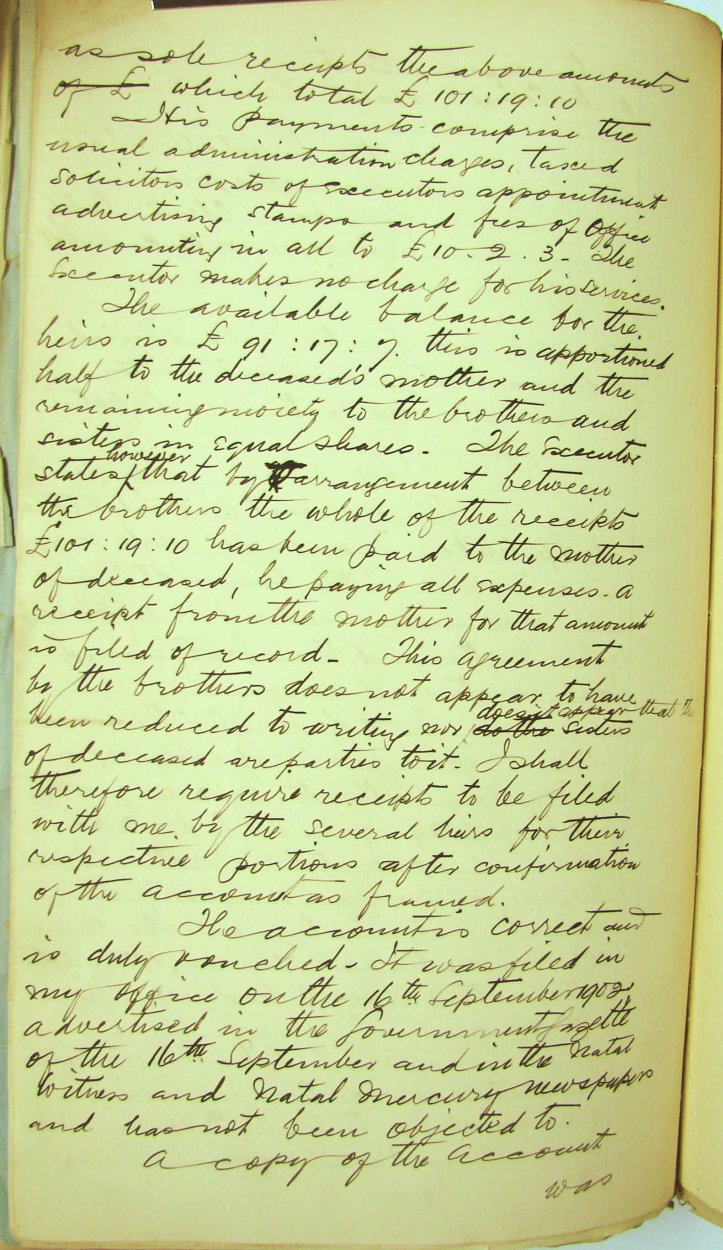 as sole receipts the above amounts
of £ which total £ 101 : 19 : 10
His payments comprise the
usual administration charges, taxed
solicitors costs of executors appointment
advertising stamps and fees of Office
amounting in all to £10. 2. 3. The
Executor makes no charge for his services.
The available balance for the
heirs is £ 91 : 17 : 7. this is apportioned
half to the deceased's mother and the
remaining moiety to the brothers and
sisters in equal shares. The Executor
states however that by arrangement between
the brothers the whole of the receipts
£101 : 19 : 10 has been paid to the mother
of deceased, he paying all expenses. a
receipt from the mother for that amount
is filed of record - This agreement
by the brothers does not appear to have
been reduced to writing nor do the does it appear that the sisters
of deceased are parties to it. I shall
therefore require receipts to be filed
with me by the several heirs for their
respective portions after confirmation
of the account as framed.
The account is correct and
is duly vouched - It was filed in
my office on the 16th September 1902,
advertised in the Government Gazette
of the 16th September and in the Natal
Witness and Natal Mercury newspapers
and has not been objected to.
A copy of the Account
was